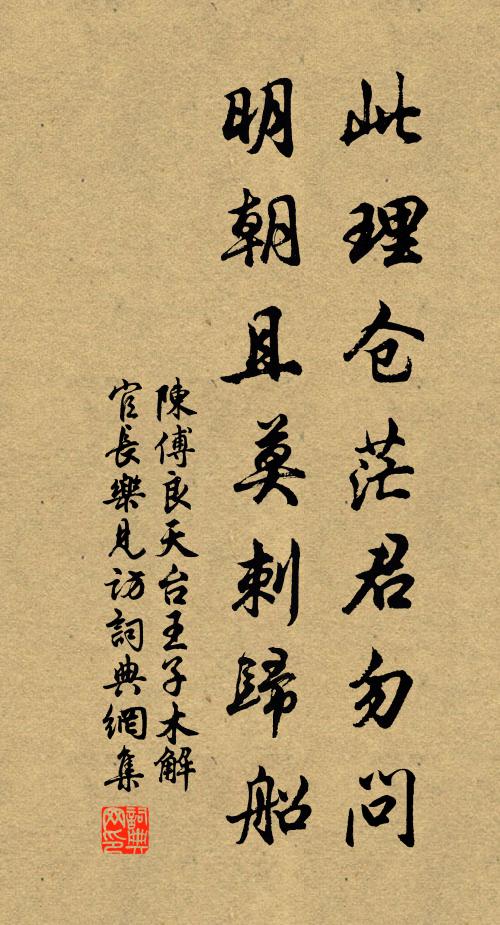 此理仓茫君勿问
明朝且莫刺歸船
陳傅良天台王子木解
官長樂見访詞典網集
詞典網印